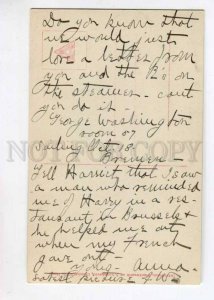 Do you know that
we would just
love a letter from
you and the B's on
the steamer - cant
you do it -
George Washington
room 87
sailing Oct 8
Bremen -
Tell Harriet that I saw
a man who reminded
me of Harry in a res-
taurant in Brussels &
he helped me out
when my French
gave out -
Anna -
latest picture of W
NOT FOR
.COM